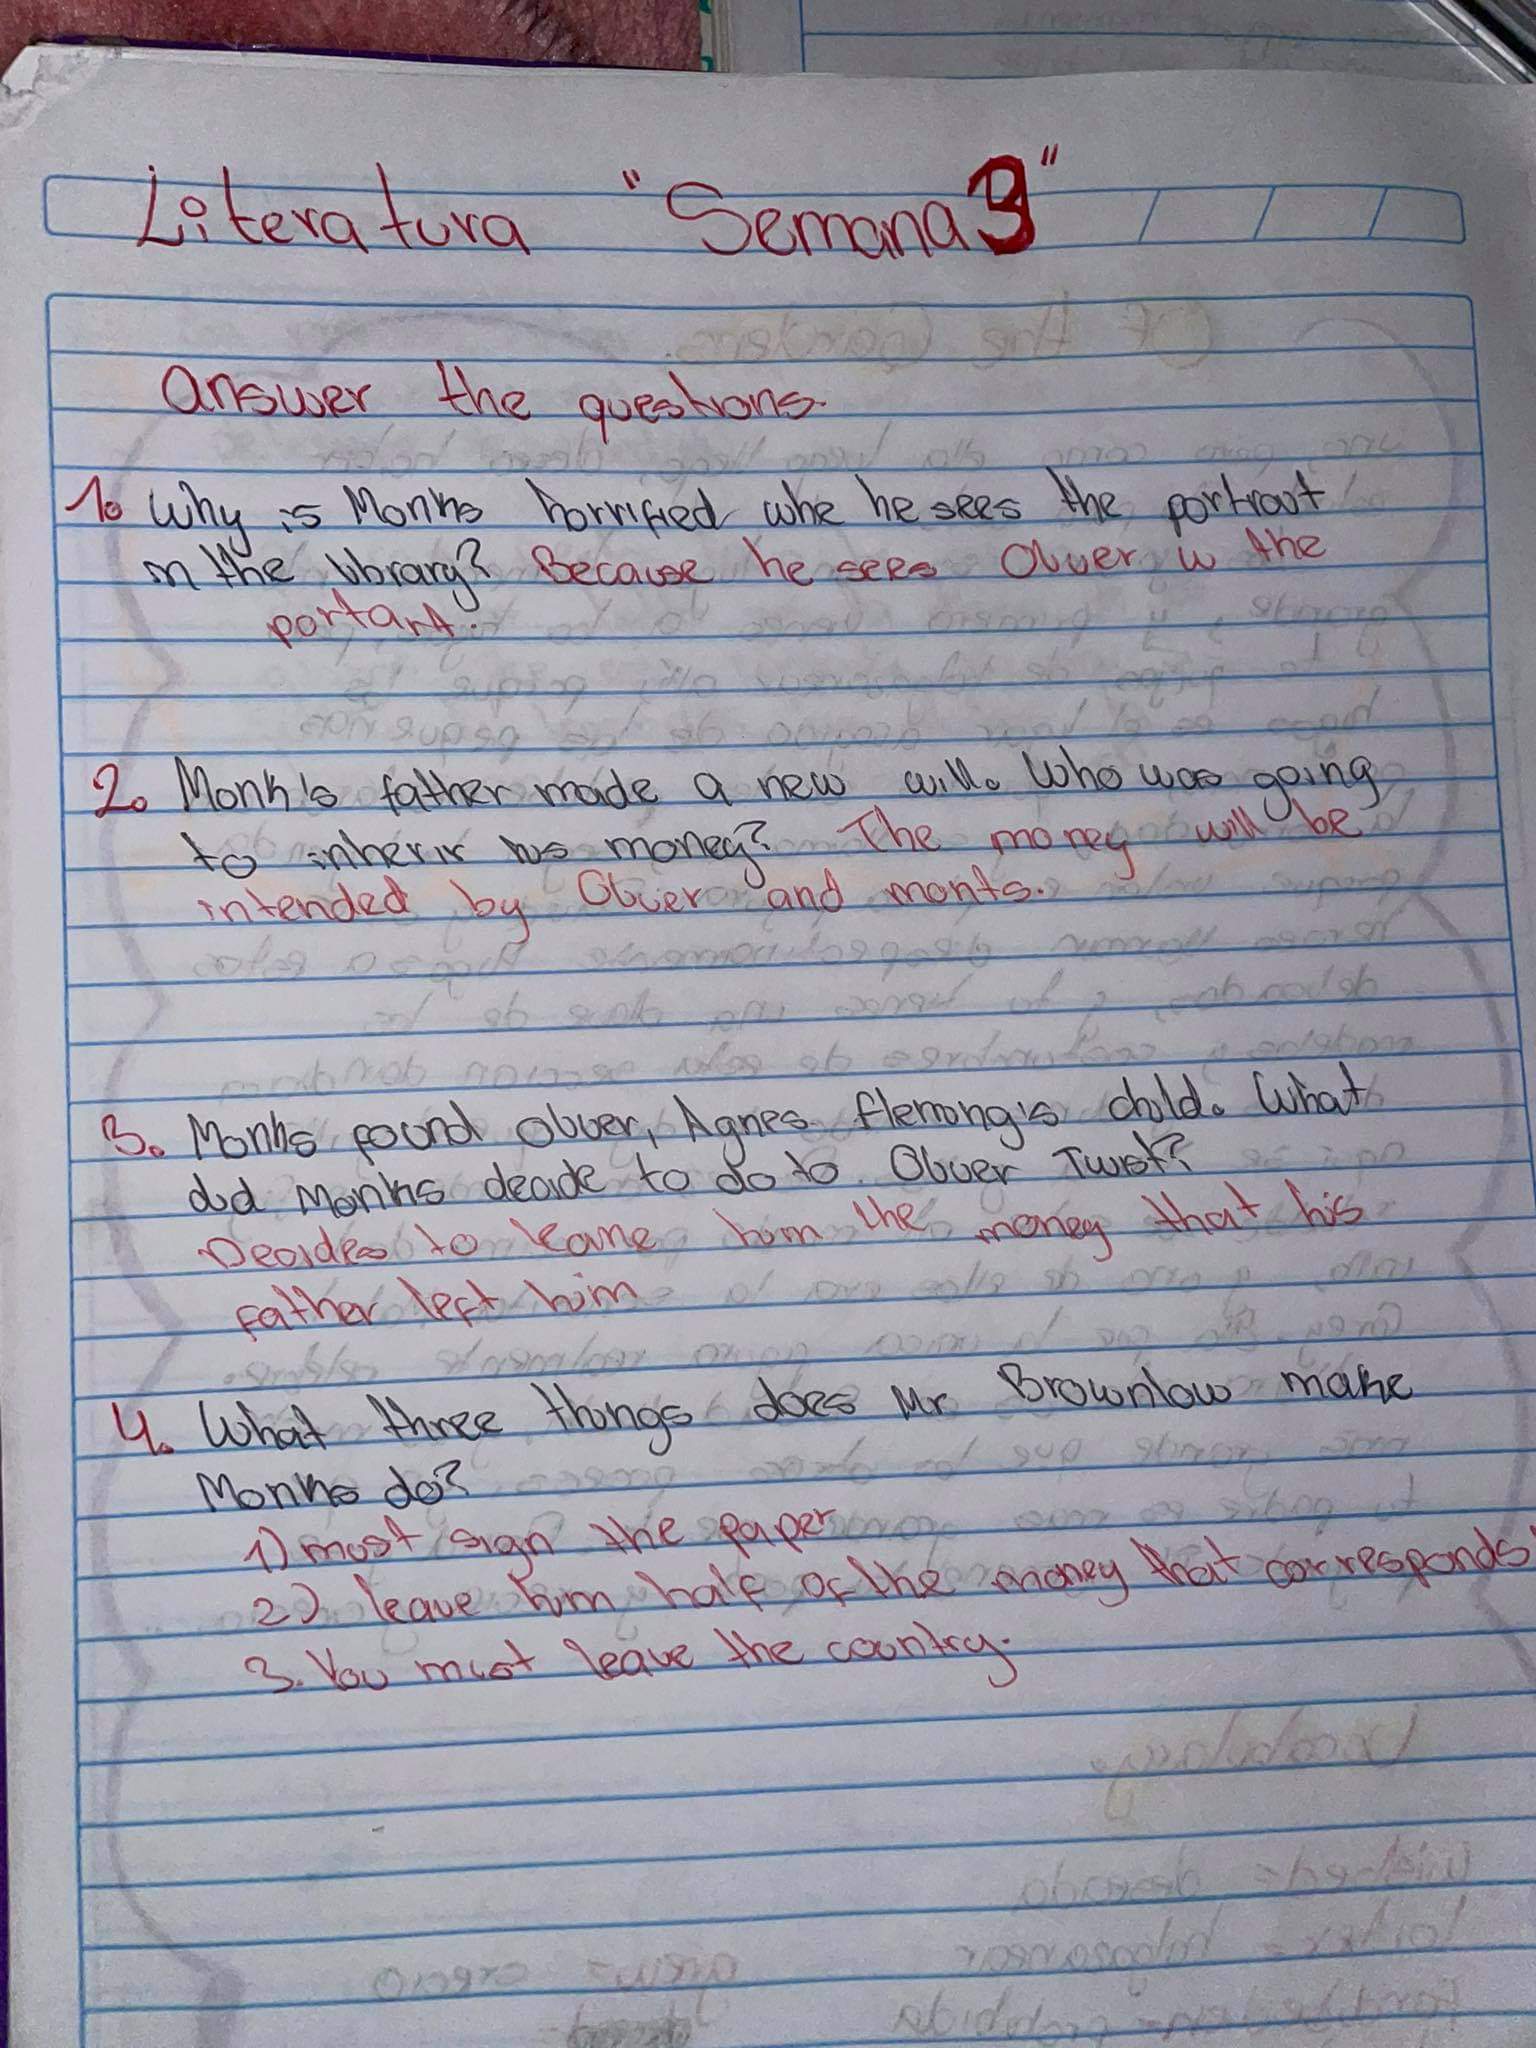 Literatura "Semana 3"
Answer the questions.
1. Why is Monks horrified whe he sees the portrait
in the library? Because he sees Oliver in the
portart.
2. Monk's father made a new will. Who was going
to inherir his money? The money will be
intended by Oliver and monts.
3. Monks found Oliver, Agnes flemong's child. What
did Monks decide to do to Oliver Twist?
Decides to leave him the money that his
father left him
4. What three things does Mr Brownlow make
Monks do?
1) most sign the paper
2) leave him half of the money that corresponds
3. You must leave the country.